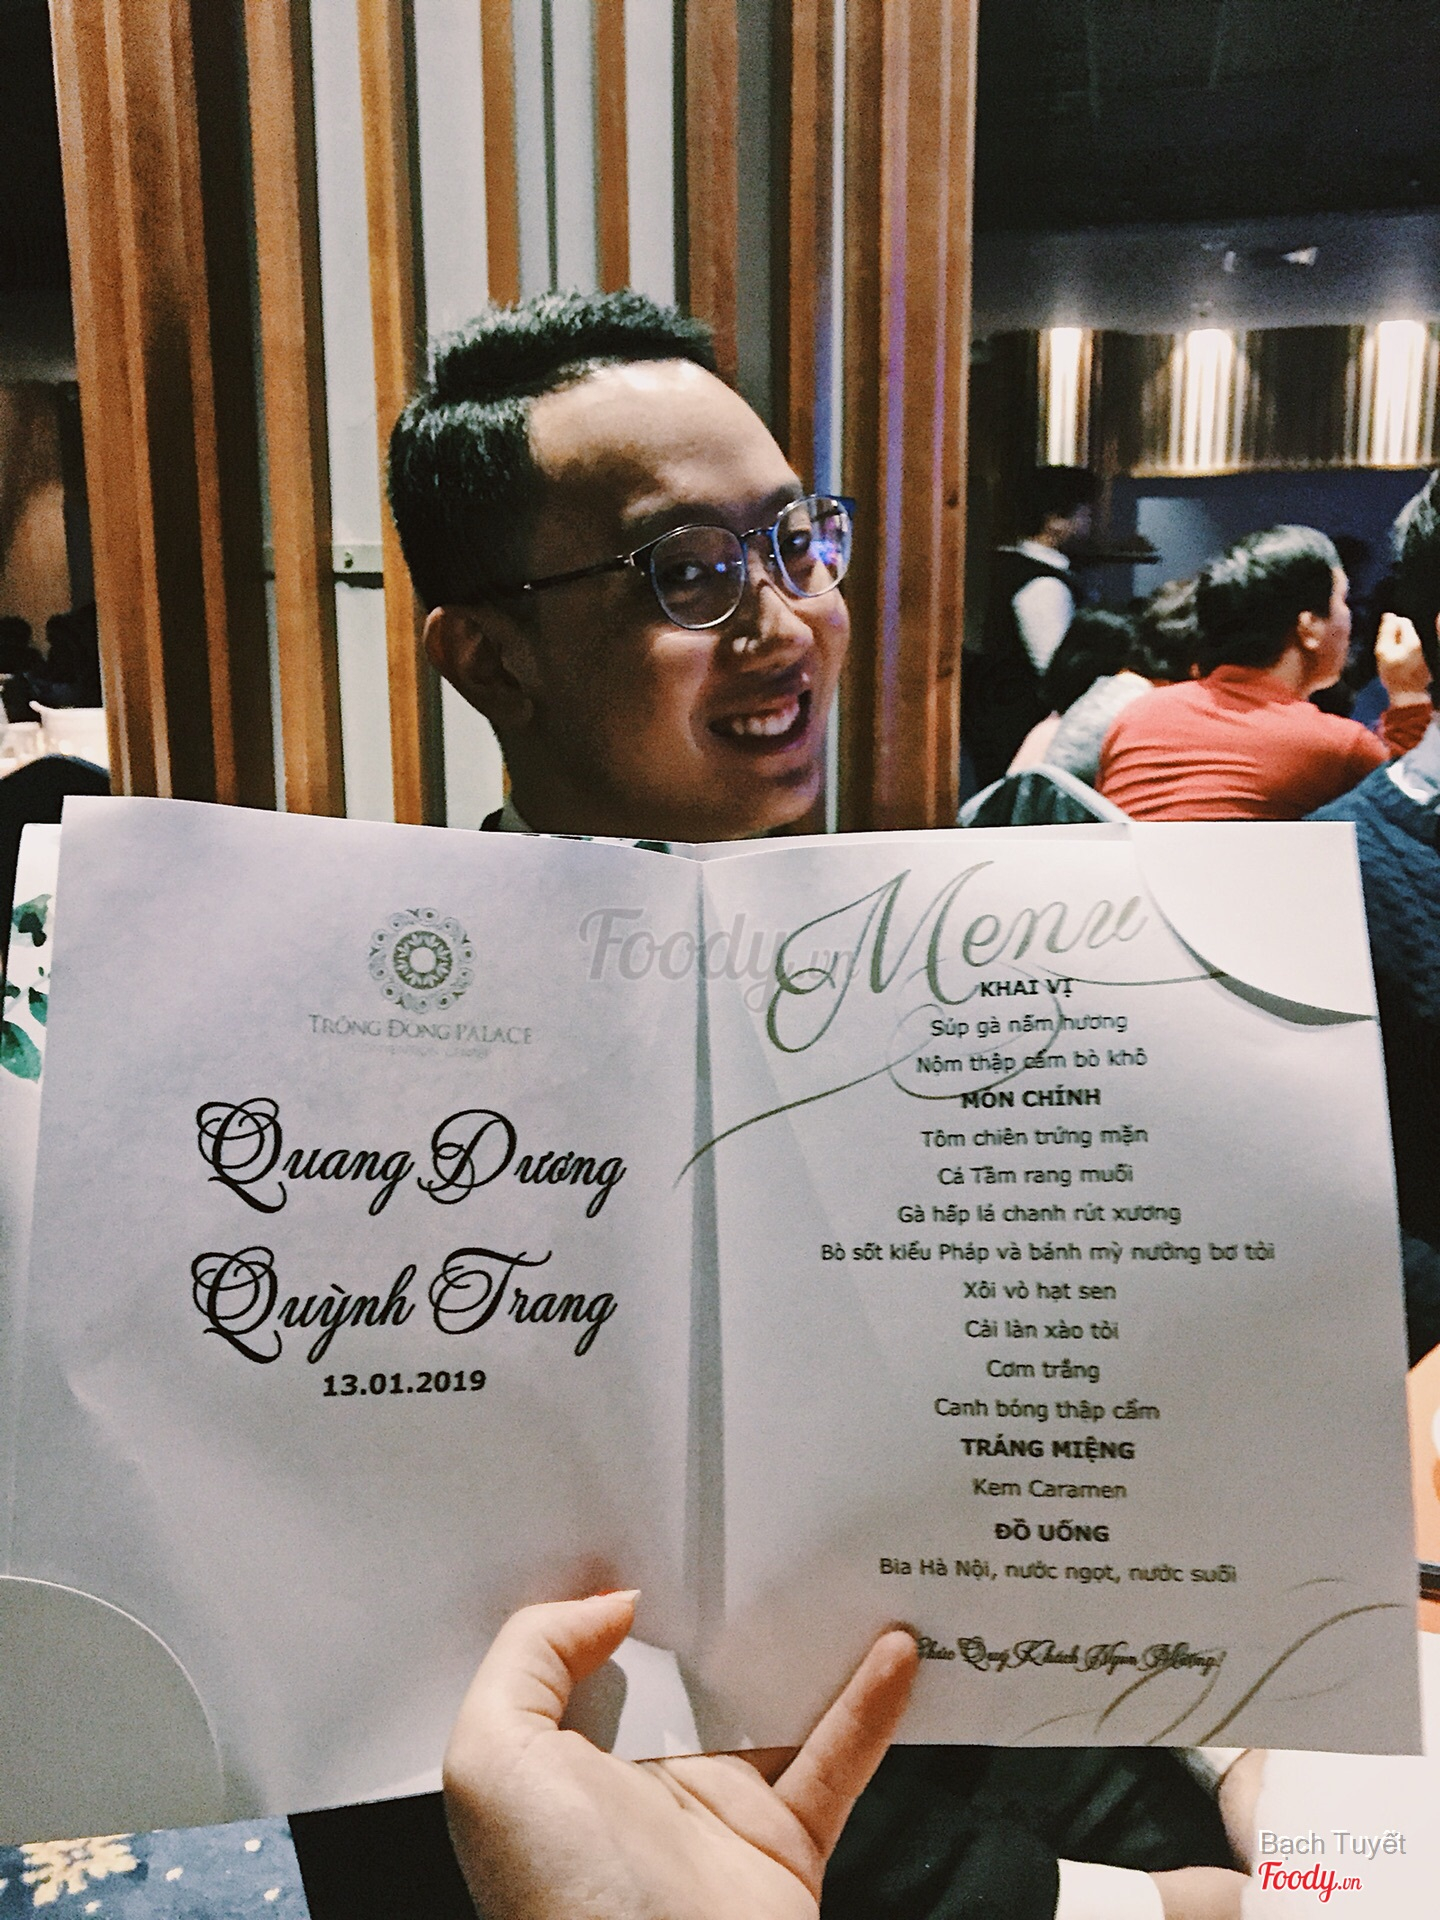 TRỐNG ĐỒNG PALACE
Quang Dương
Quỳnh Trang
13.01.2019
Menu
KHAI VỊ
Súp gà nấm hương
Nộm thập cẩm bò khô
MÓN CHÍNH
Tôm chiên trứng mặn
Cá Tầm rang muối
Gà hấp lá chanh rút xương
Bò sốt kiểu Pháp và bánh mỳ nướng bơ tỏi
Xôi vò hạt sen
Cải làn xào tỏi
Cơm trắng
Canh bóng thập cẩm
TRÁNG MIỆNG
Kem Caramen
ĐỒ UỐNG
Bia Hà Nội, nước ngọt, nước suối
Chúc Quý Khách Ngon Miệng!
Foody.vn
Bạch Tuyết
Foody.vn